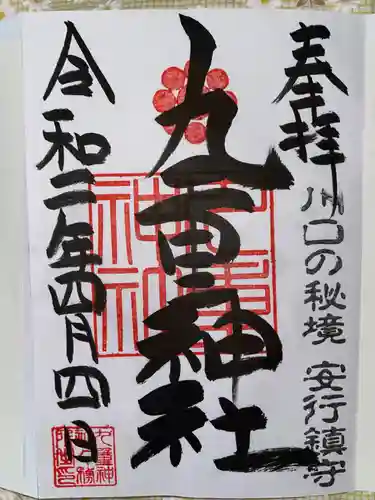 奉拝
川口の秘境 安行鎮守
九重神社
令和二年四月四日
九重神社